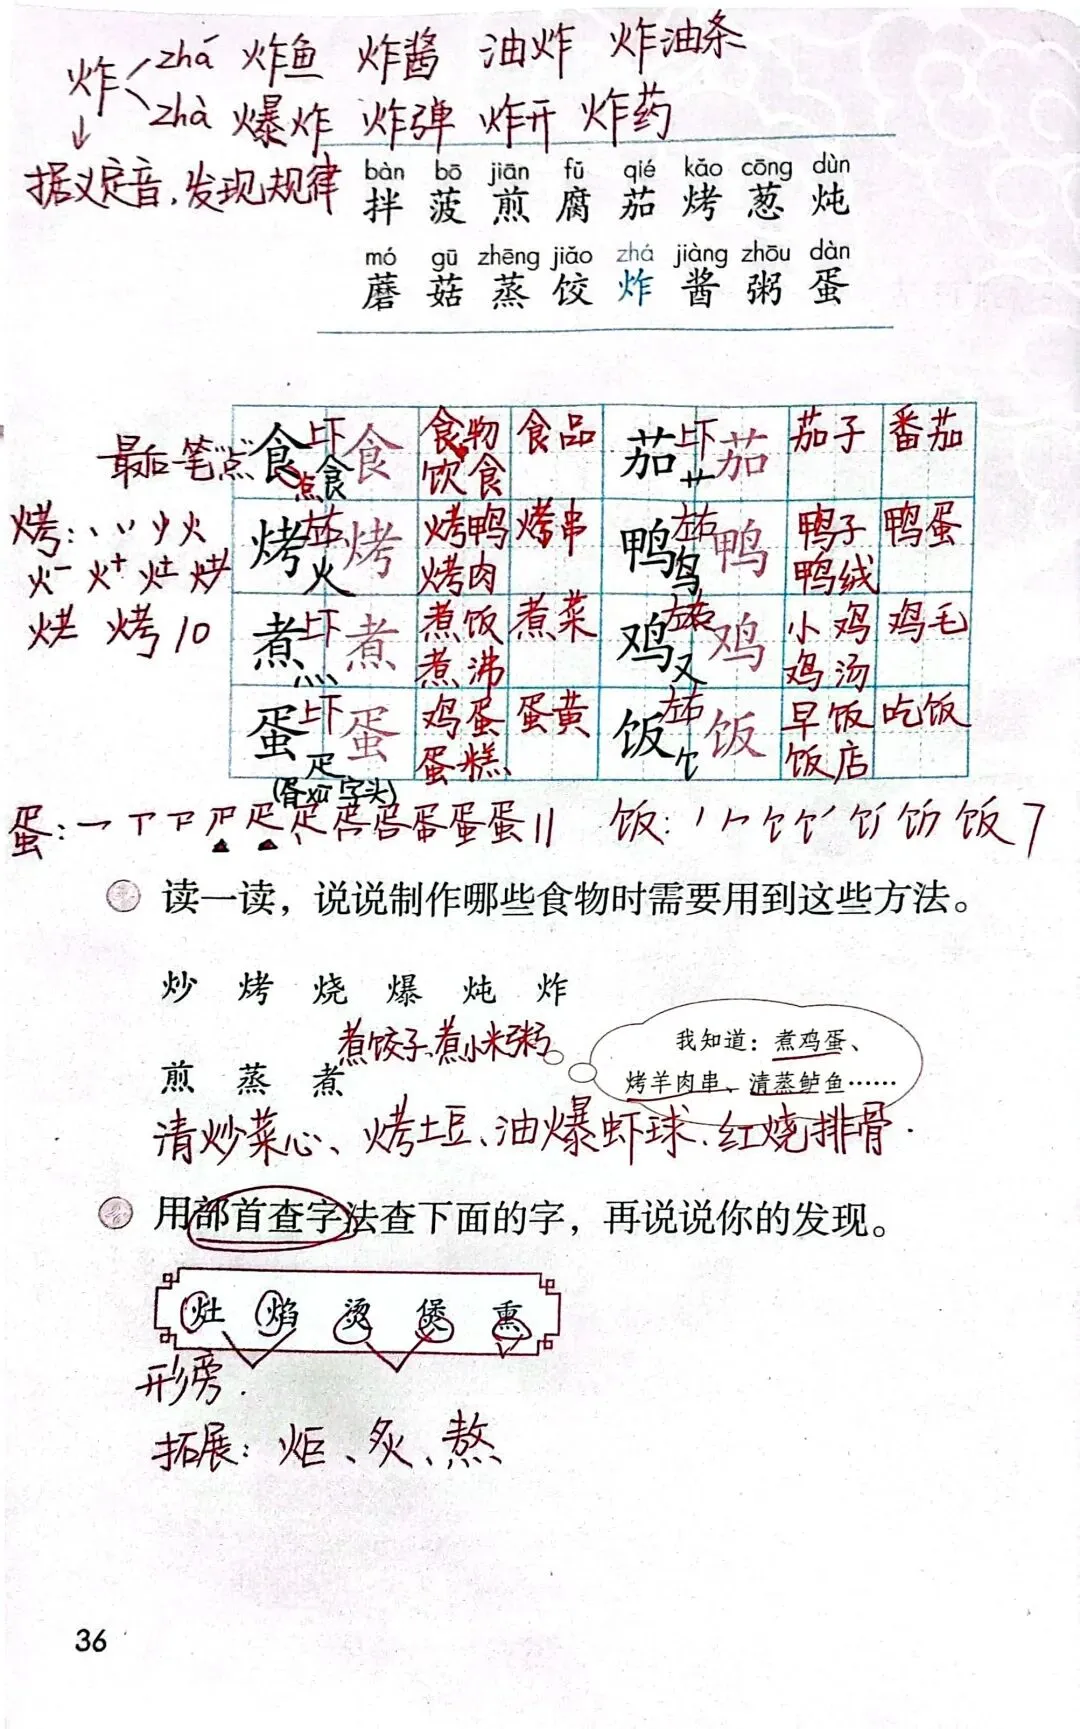 炸 zhá 炸鱼 炸酱 油炸 炸油条
zhà 爆炸 炸弹 炸开 炸药
据义定音,发现规律
bàn bō jiān fǔ qié kǎo cōng dùn
拌 菠 煎 腐 茄 烤 葱 炖
mó gū zhēng jiǎo zhá jiàng zhōu dàn
蘑 菇 蒸 饺 炸 酱 粥 蛋
最后一笔点 食 上下 食 食物 食品 茄 上下 茄 茄子 番茄
点 食 饮食 艹
烤:丶 丷 少 火 烤 左右 烤 烤鸭 烤串 鸭 左右 鸭 鸭子 鸭蛋
火 烤肉 鸟 鸭绒
烤 10 煮 上下 煮 煮饭 煮菜 鸡 左右 鸡 小鸡 鸡毛
灬 煮沸 又 鸡汤
蛋 上下 蛋 鸡蛋 蛋黄 饭 左右 饭 早饭 吃饭
疋 蛋糕 饣 饭店
字头)
蛋: 蛋 11 饭: 饭 7
读一读,说说制作哪些食物时需要用到这些方法。
炒 烤 烧 爆 炖 炸
煮饺子、煮小米粥
我知道:煮鸡蛋、
烤羊肉串、清蒸鲈鱼……
煎 蒸 煮
清炒菜心、烤土豆、油爆虾球、红烧排骨.
用部首查字法查下面的字,再说说你的发现。
灶 焰 烫 煲 熏
形旁.
拓展:炬、炙、熬
36